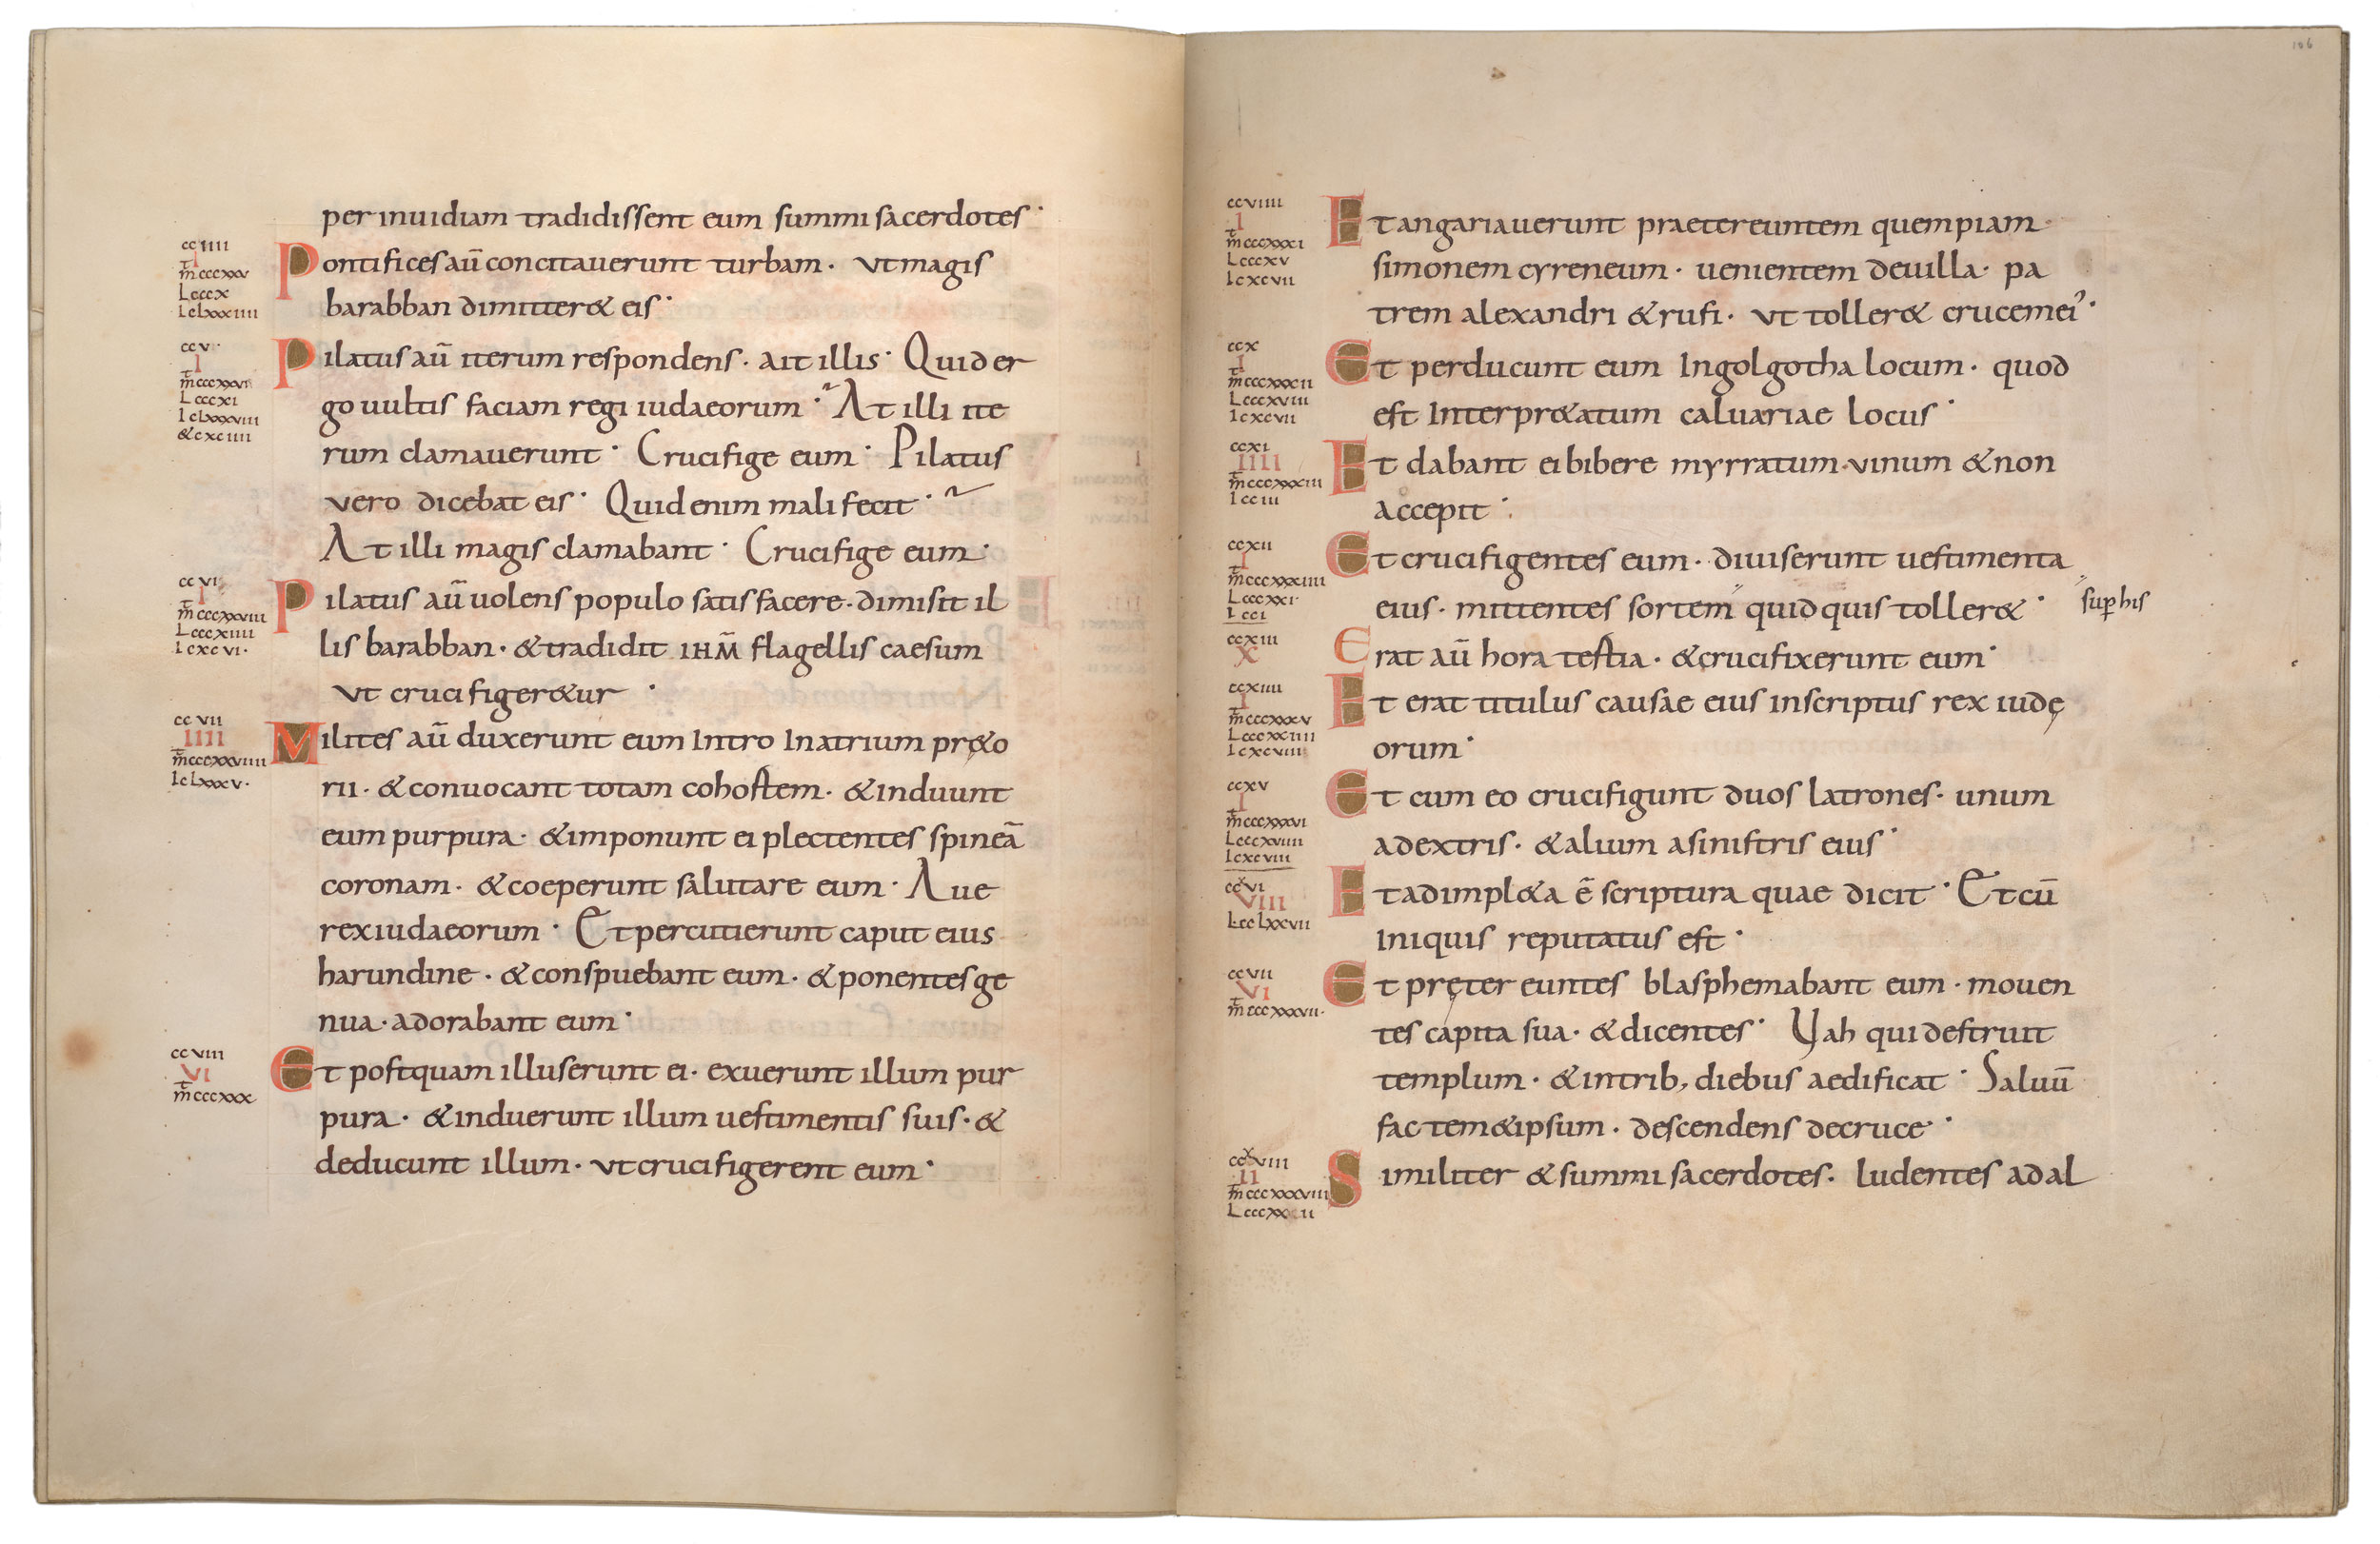 per inuidiam tradidissent eum summi sacerdotes·
cciiii
i
mt cccxxv
L cccx
Io clxxxiiii
Pontifices aū concitauerunt turbam· vt magis
barabban dimitter& eis·
ccv·
i
mt cccxxvi
L cccxi
Io clxxxviii
& cxciiii
Pilatus aū iterum respondens· ait illis· Quid er
go uultis faciam regi iudaeorum· At illi ite
rum clamauerunt· Crucifige eum· Pilatus
vero dicebat eis· Quid enim mali fecit·
At illi magis clamabant· Crucifige eum·
ccvi
i
mt cccxxviii
L cccxiiii
Io cxcvi·
Pilatus aū uolens populo satisfacere· dimisit il
lis barabban· & tradidit ihm̄ flagellis caesum
vt crucifiger&ur·
ccvii
iiii
mt cccxxviiii
Io clxxxv·
Milites aū duxerunt eum intro in atrium pr&o
rii· & conuocant totam cohortem· & induunt
eum purpura· & imponunt ei plectentes spineā
coronam· & coeperunt salutare eum· Aue
rex iudaeorum· Et percutierunt caput eius
harundine· & conspuebant eum· & ponentes ge
nua· adorabant eum·
ccviii
vi
mt cccxxx
Et postquam illuserunt ei· exuerunt illum pur
pura· & induerunt illum uestimentis suis· &
deducunt illum· vt crucifigerent eum·
106
ccviiii
i
mt cccxxxi
L cccxv
Io cxcvii
Et angariauerunt praetereuntem quempiam·
simonem cyreneum· uenientem de uilla· pa
trem alexandri & rufi· vt toller& crucem ei᾽·
ccx
i
mt cccxxxii
L cccxviii
Io cxcvii
Et perducunt eum in golgotha locum· quod
est interpr&atum caluariae locus·
ccxi
iiii
mt cccxxxiii
Io cciii
Et dabant ei bibere myrratum· vinum & non
accepit·
ccxii
i
mt cccxxxiiii
L cccxxi·
Io cci
Et crucifigentes eum· diuiserunt uestimenta
eius· mittentes sortem quid quis toller&· sup̄ his
ccxiii
x
Erat aū hora tertia· & crucifixerunt eum·
ccxiiii
i
mt cccxxxv
L cccxxiiii
Io cxcviii
Et erat titulus causae eius inscriptus rex iudę
orum·
ccxv
i
mt cccxxxvi
L cccxviiii
Io cxcviii
Et cum eo crucifigunt duos latrones· unum
a dextris· & alium a sinistris eius·
ccxvi
viii
L cclxxvii
Et adimpl&a ē scriptura quae dicit· Et cū
iniquis reputatus est·
ccvii
vi
mt cccxxxvii·
Et pręter euntes blasphemabant eum· mouen
tes capita sua· & dicentes· Vah qui destruit
templum· & in trib, diebus aedificat· Saluū
fac tem&ipsum· descendens de cruce·
ccxviii
ii
mt cccxxxviii
Similiter & summi sacerdotes· ludentes ad al